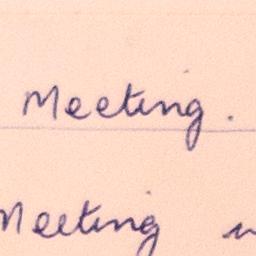 Meeting.
Meeting